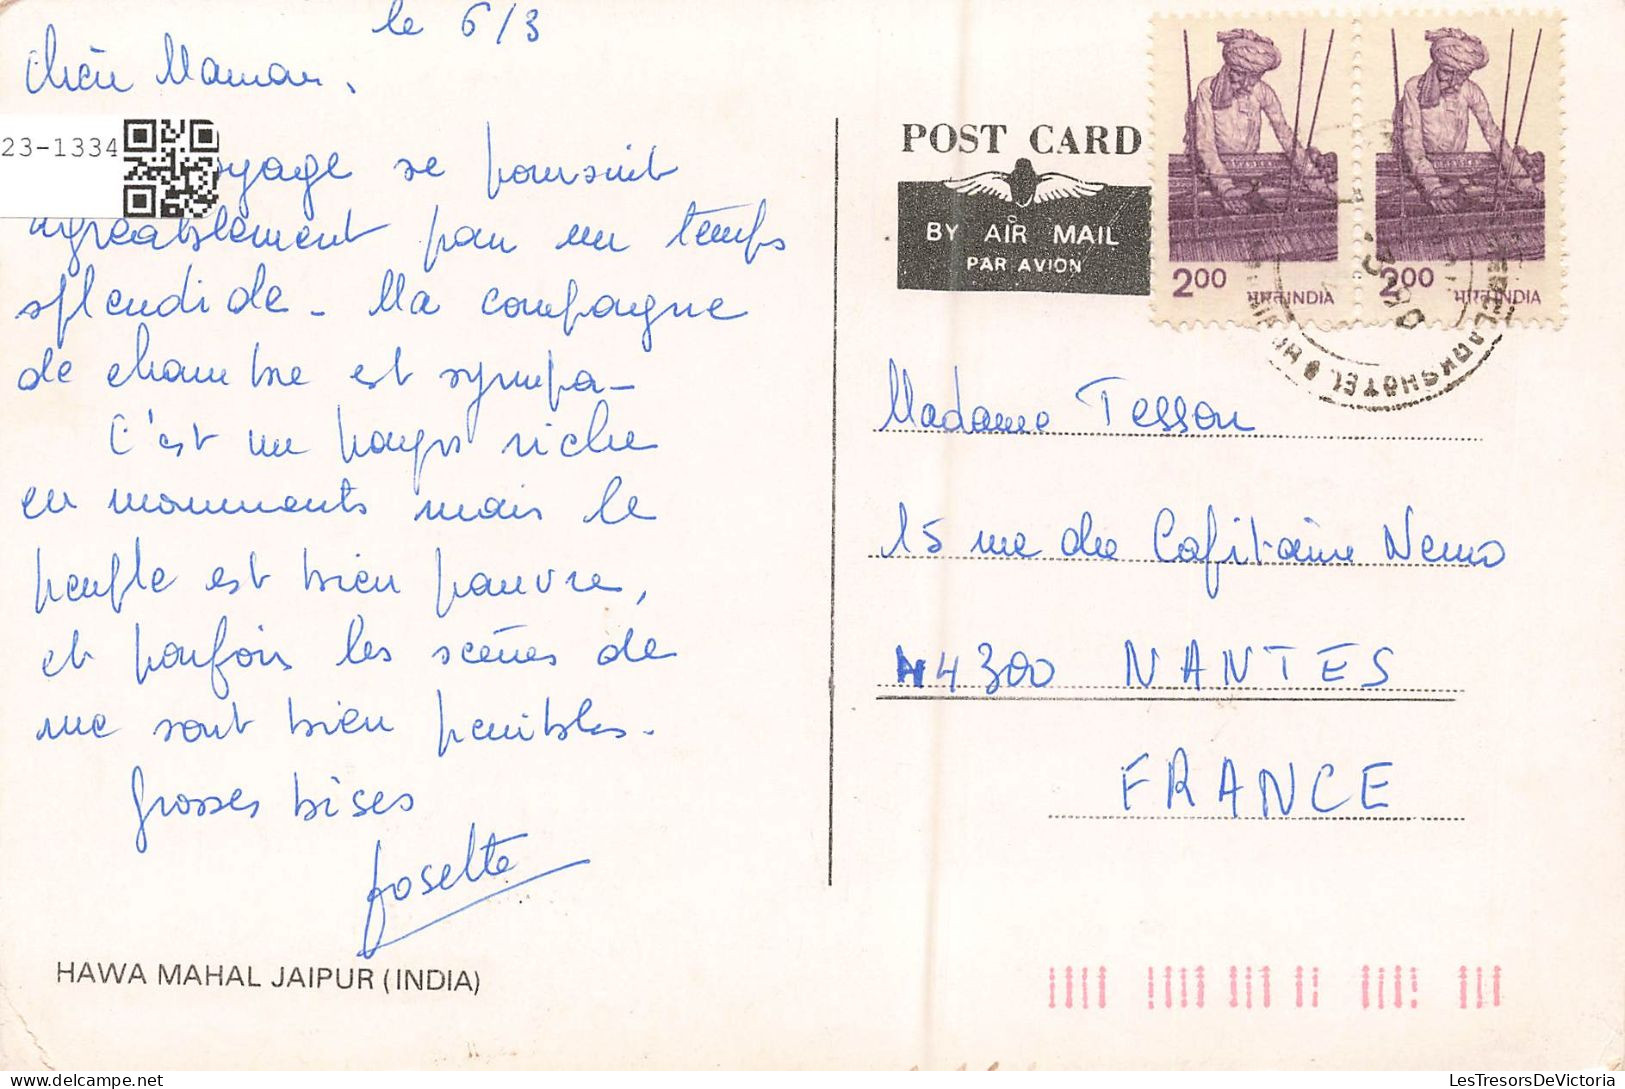 le 6/3
Chère Maman,
23-1334
voyage se poursuit
agréablement par un temps
splendide - Ma compagne
de chambre est sympa -
C'est un pays riche
en monuments mais le
peuple est bien pauvre,
et parfois les scènes de
rue sont bien pénibles.
Grosses bises
Josette
HAWA MAHAL JAIPUR (INDIA)
POST CARD
BY AIR MAIL
PAR AVION
2.00 भारत INDIA
2.00 भारत INDIA
Madame Tesson
15 rue du Capitaine Nemo
44300 NANTES
FRANCE
LesTresorsDeVictoria